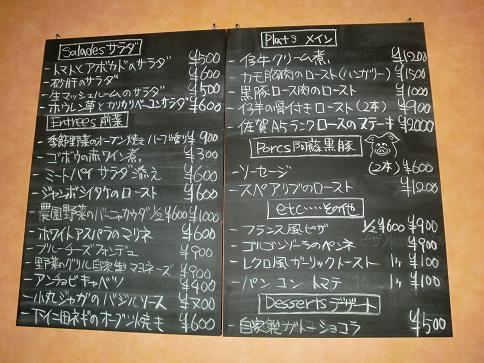 Salades サラダ
- トマトとアボカドのサラダ ¥500
- 砂肝のサラダ ¥600
- 生マッシュルームのサラダ ¥500
- ホウレン草とカリカリベーコンサラダ ¥600
Entrées 前菜
- 季節野菜のオーブン焼き ハーブ香り ¥900
- ゴボウの赤ワイン煮 ¥300
- ミートパイ サラダ添え ¥600
- ジャンボシイタケのロースト ¥600
- 農園野菜のバーニャカウダ 1/2 ¥600 ¥1000
- ホワイトアスパラのマリネ ¥600
- ブルーチーズフォンデュ ¥900
- 野菜のグリル自家製マヨネーズ ¥900
- アンチョビキャベツ ¥400
- 小丸ジャガのバジルソース ¥300
- 下仁田ネギのオーブン焼き ¥600
Plats メイン
- 仔牛クリーム煮 ¥1200
- カモ胸肉のロースト(ハンガリー) ¥1500
- 黒豚ロース肉のロースト ¥1000
- 仔羊の骨付きロースト(2本) ¥900
- 佐賀A5ランクロースのステーキ ¥2000
Porcs 阿蘇黒豚
- ソーセージ (2本) ¥600
- スペアリブのロースト ¥1200
etc……その他
- フランス風ピザ 1/2 ¥600 ¥900
- ゴルゴンゾーラのペンネ ¥900
- レクロ風ガーリックトースト 1ヶ ¥100
- パン コン トマテ 1ヶ ¥100
Desserts デザート
- 自家製ガトーショコラ ¥500